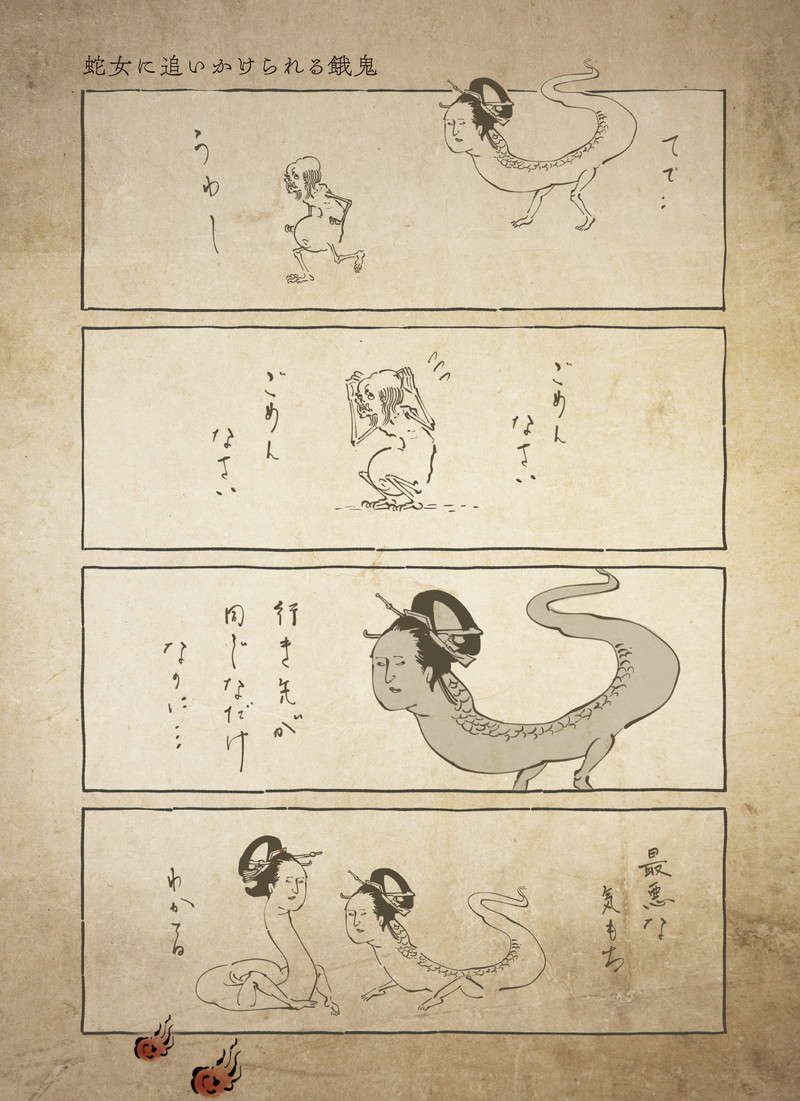 蛇女に追いかけられる餓鬼
うわー
ごめん
なさい
ごめん
なさい
行き先が
同じなだけ
なのに…
最悪な
気もち
わかる